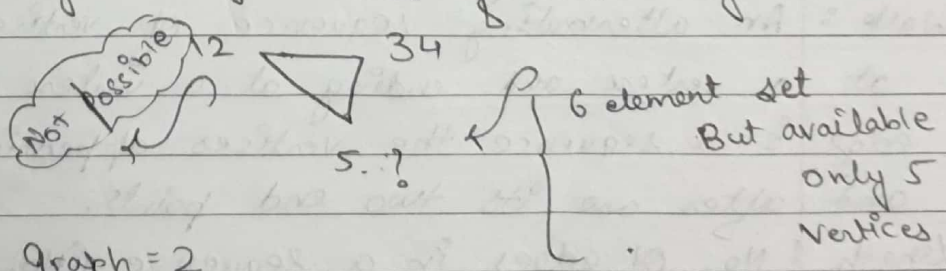 Not Possible
12
34
5..?
6 element set
But available
only 5
vertices
graph = 2